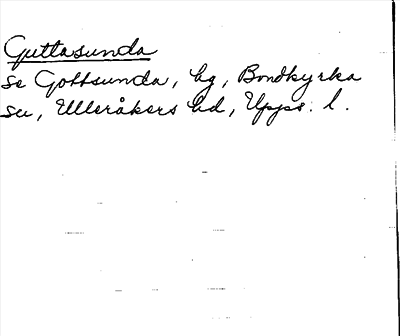 Guttasunda
se Gottsunda, hg, Bondkyrka
sn, Ulleråkers hd, Upps. l.